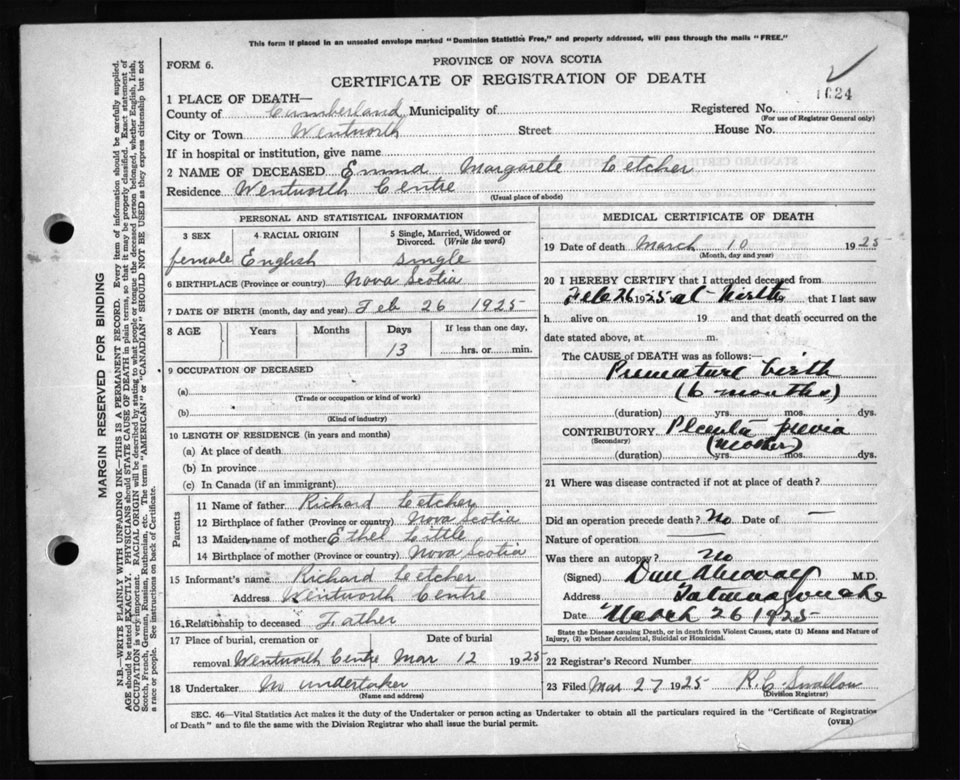 This form if placed in an unsealed envelope marked "Dominion Statistics Free," and properly addressed, will pass through the mails "FREE."
FORM 6.
PROVINCE OF NOVA SCOTIA
CERTIFICATE OF REGISTRATION OF DEATH
1024
1 PLACE OF DEATH—
County of Cumberland Municipality of
Registered No.
(For use of Registrar General only)
City or Town Wentworth Street House No.
If in hospital or institution, give name
2 NAME OF DECEASED Emma Margarete Letcher
Residence Wentworth Centre
(Usual place of abode)
PERSONAL AND STATISTICAL INFORMATION
3 SEX 4 RACIAL ORIGIN 5 Single, Married, Widowed or Divorced. (Write the word)
female English single
6 BIRTHPLACE (Province or country) Nova Scotia
7 DATE OF BIRTH (month, day and year) Feb 26 1925
8 AGE Years Months Days If less than one day,
13 hrs. or min.
9 OCCUPATION OF DECEASED
(a)
(Trade or occupation or kind of work)
(b)
(Kind of industry)
10 LENGTH OF RESIDENCE (in years and months)
(a) At place of death
(b) In province
(c) In Canada (if an immigrant)
Parents
11 Name of father Richard Letcher
12 Birthplace of father (Province or country) Nova Scotia
13 Maiden name of mother Ethel Little
14 Birthplace of mother (Province or country) Nova Scotia
15 Informant's name Richard Letcher
Address Wentworth Centre
16 Relationship to deceased Father
17 Place of burial, cremation or Date of burial
removal Wentworth Centre Mar 12 1925
18 Undertaker No undertaker
(Name and address)
MEDICAL CERTIFICATE OF DEATH
19 Date of death March 10 1925
(Month, day and year)
20 I HEREBY CERTIFY that I attended deceased from
Feb 26 1925 at birth, that I last saw
h alive on 19 and that death occurred on the
date stated above, at m.
The CAUSE OF DEATH was as follows:
Premature birth
(6 months)
(duration) yrs. mos. dys.
CONTRIBUTORY Placenta previa
(Secondary) (Mother)
(duration) yrs. mos. dys.
21 Where was disease contracted if not at place of death?
Did an operation precede death? No Date of —
Nature of operation —
Was there an autopsy? No
(Signed) Dan M.D.
Address
Date March 26 1925
State the Disease causing Death, or in death from Violent Causes, state (1) Means and Nature of
Injury, (2) whether Accidental, Suicidal or Homicidal.
22 Registrar's Record Number
23 Filed Mar 27 1925 R. C. Swallow
(Division Registrar)
SEC. 46—Vital Statistics Act makes it the duty of the Undertaker or person acting as Undertaker to obtain all the particulars required in the "Certificate of Registration
of Death" and to file the same with the Division Registrar who shall issue the burial permit. (OVER)
MARGIN RESERVED FOR BINDING
N.B.—WRITE PLAINLY WITH UNFADING INK—THIS IS A PERMANENT RECORD. Every item of information should be carefully supplied.
AGE should be stated EXACTLY. PHYSICIANS should STATE CAUSE OF DEATH in plain terms, so that it may be properly classified. Exact statement of
OCCUPATION is very important. RACIAL ORIGIN will be described by stating to what people or tongue the deceased person belonged, whether English, Irish,
Scotch, French, German, Russian, Ruthenian, etc. The terms "AMERICAN" or "CANADIAN" SHOULD NOT BE USED as they express citizenship but not
a race or people. See instructions on back of Certificate.